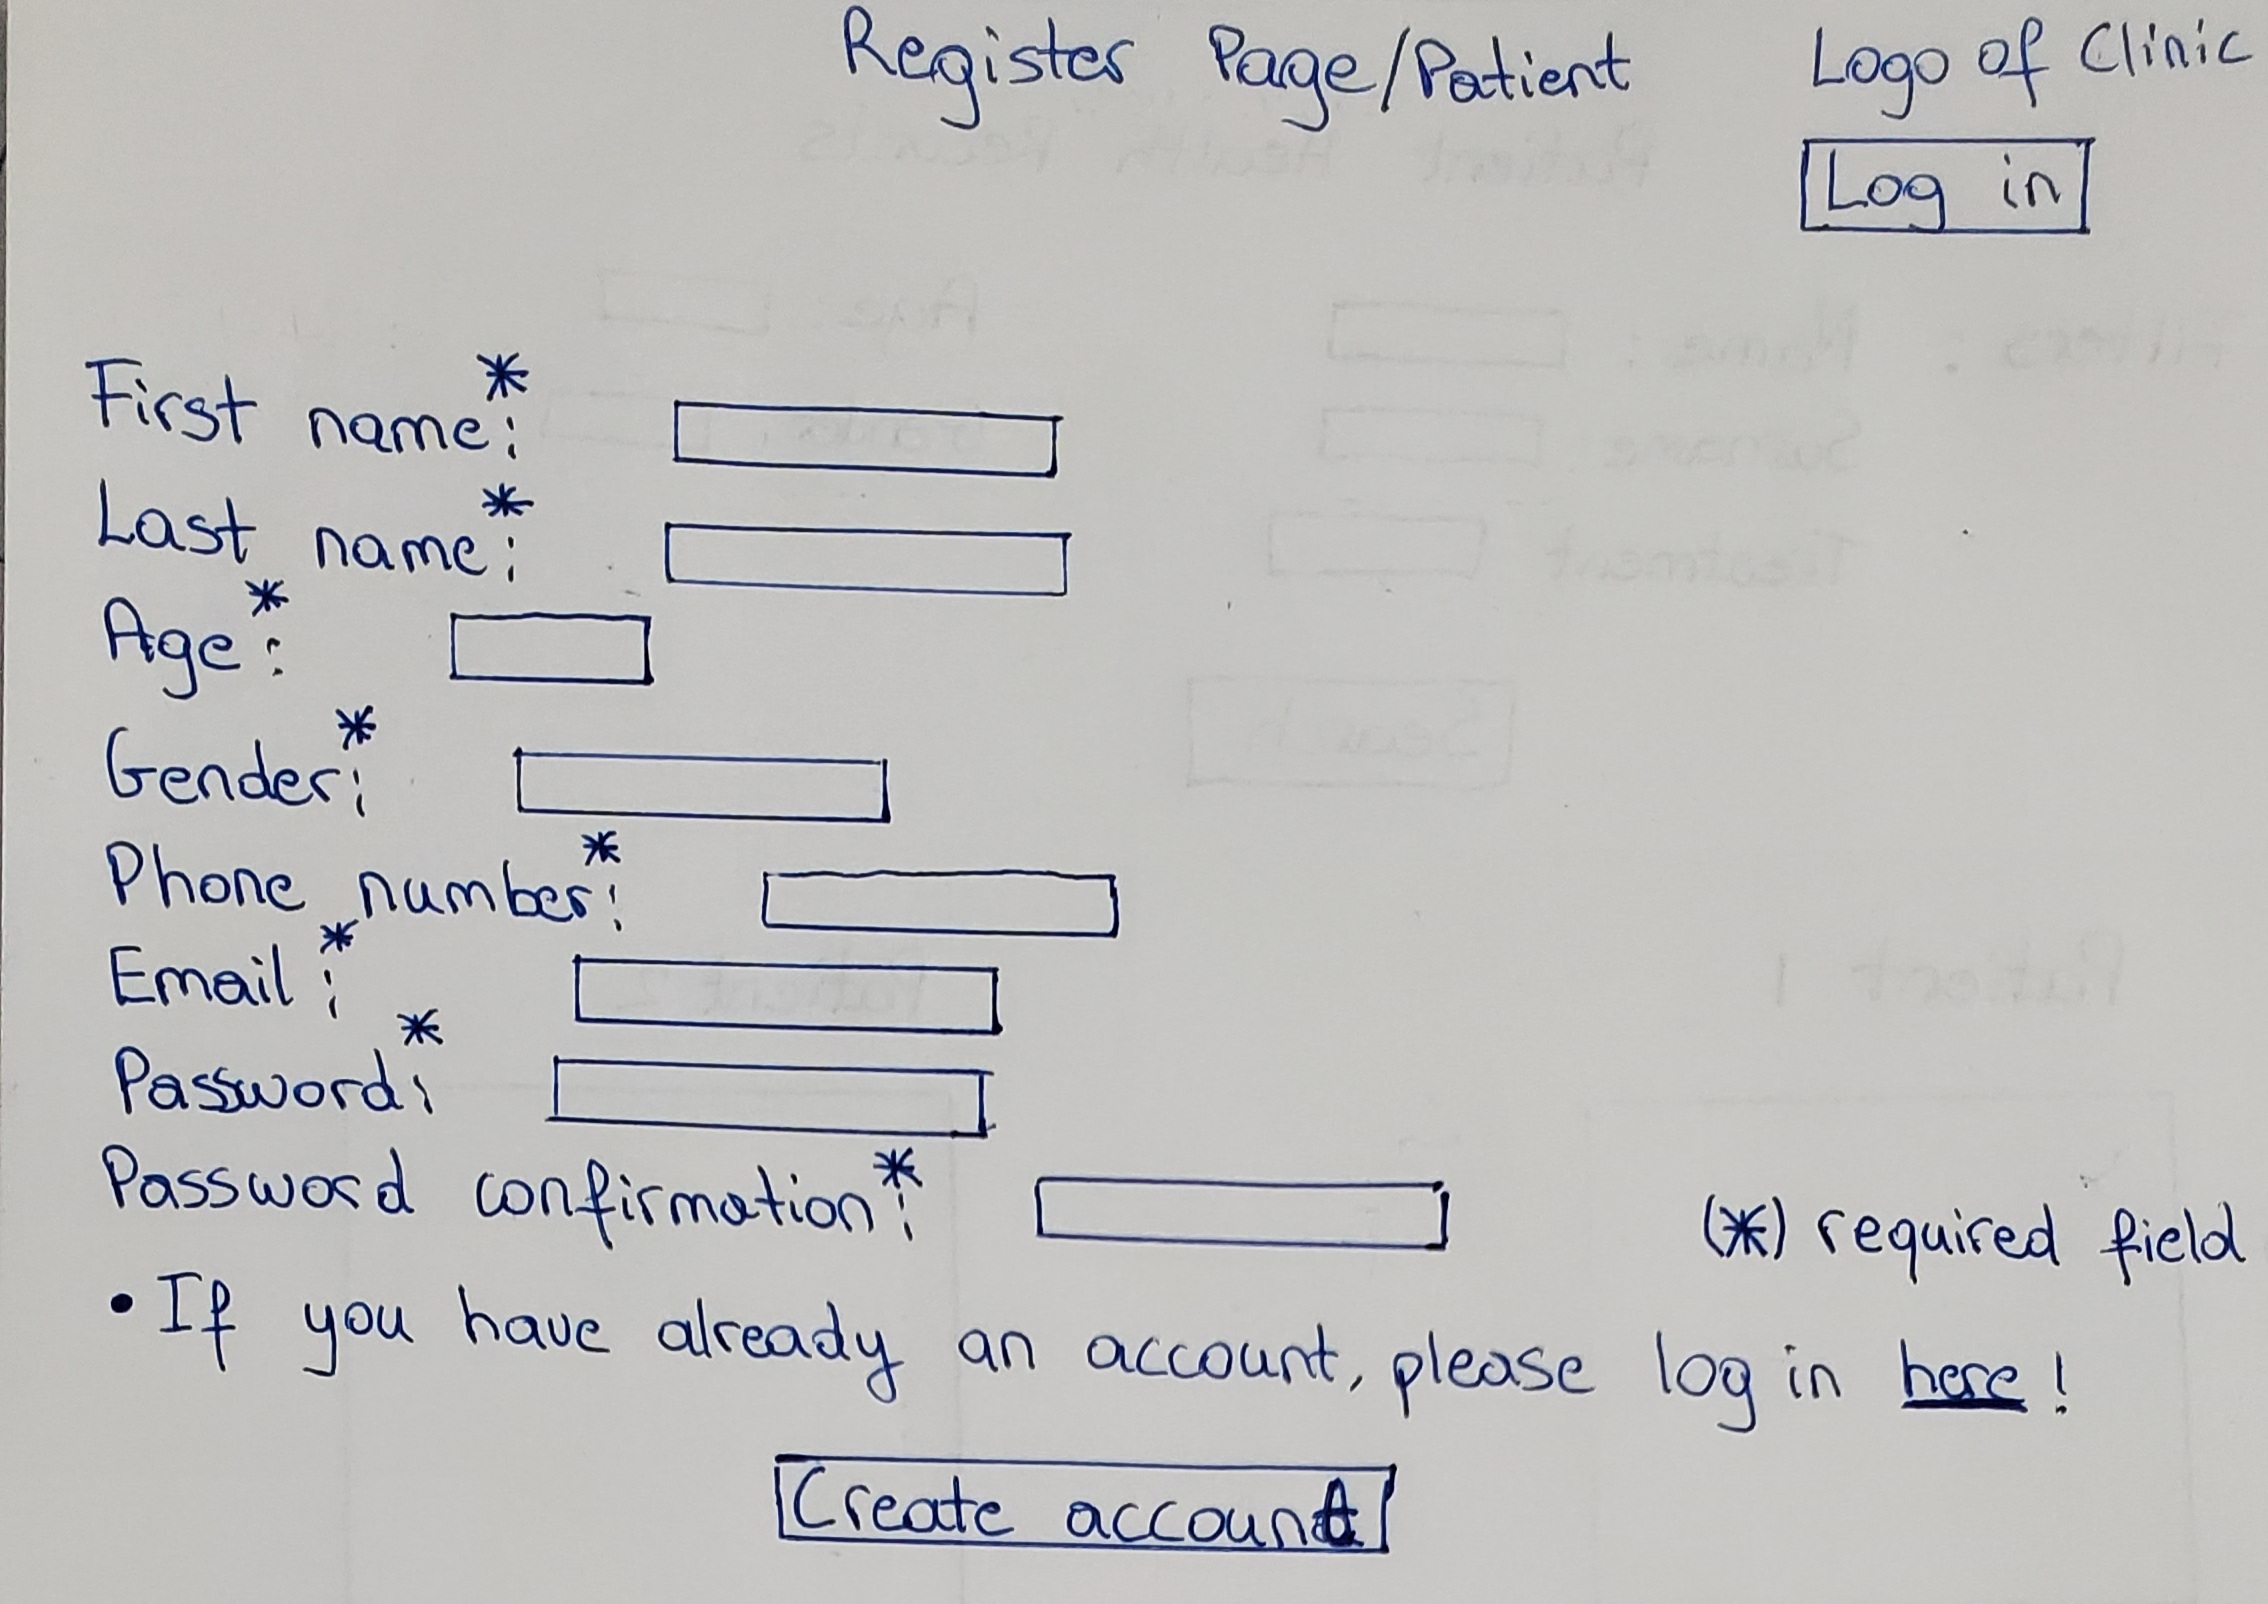 Register Page/Patient Logo of Clinic
Log in
First name*:
Last name*:
Age*:
Gender*:
Phone number*:
Email*:
Password*:
Password confirmation*: (*) required field
• If you have already an account, please log in here!
Create account